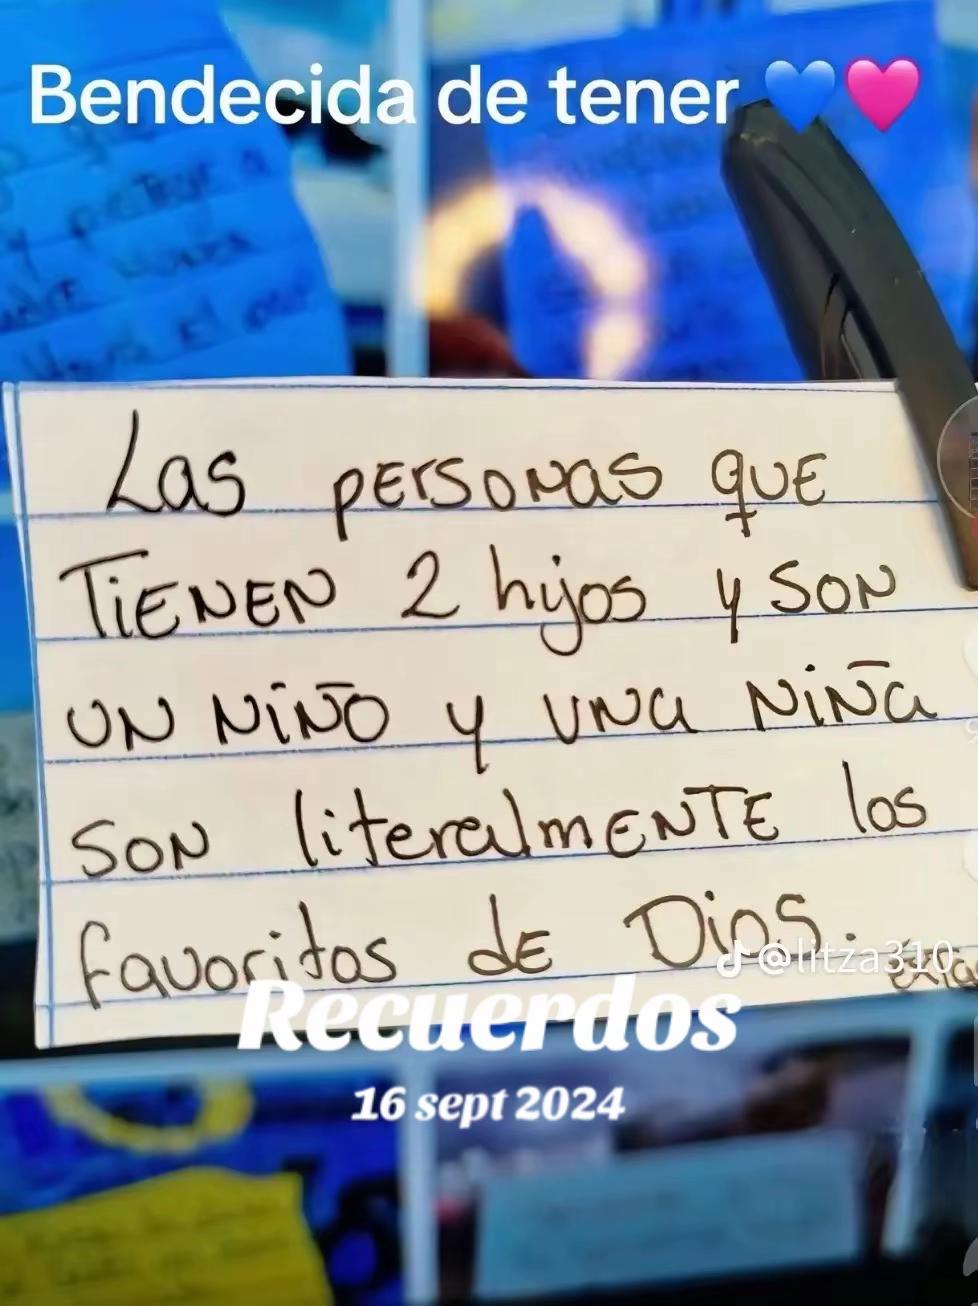 Bendecida de tener 💙🩷
Las personas que
Tienen 2 hijos y son
un niño y una niña
son literalmente los
favoritos de Dios.
@litza310
Recuerdos
16 sept 2024